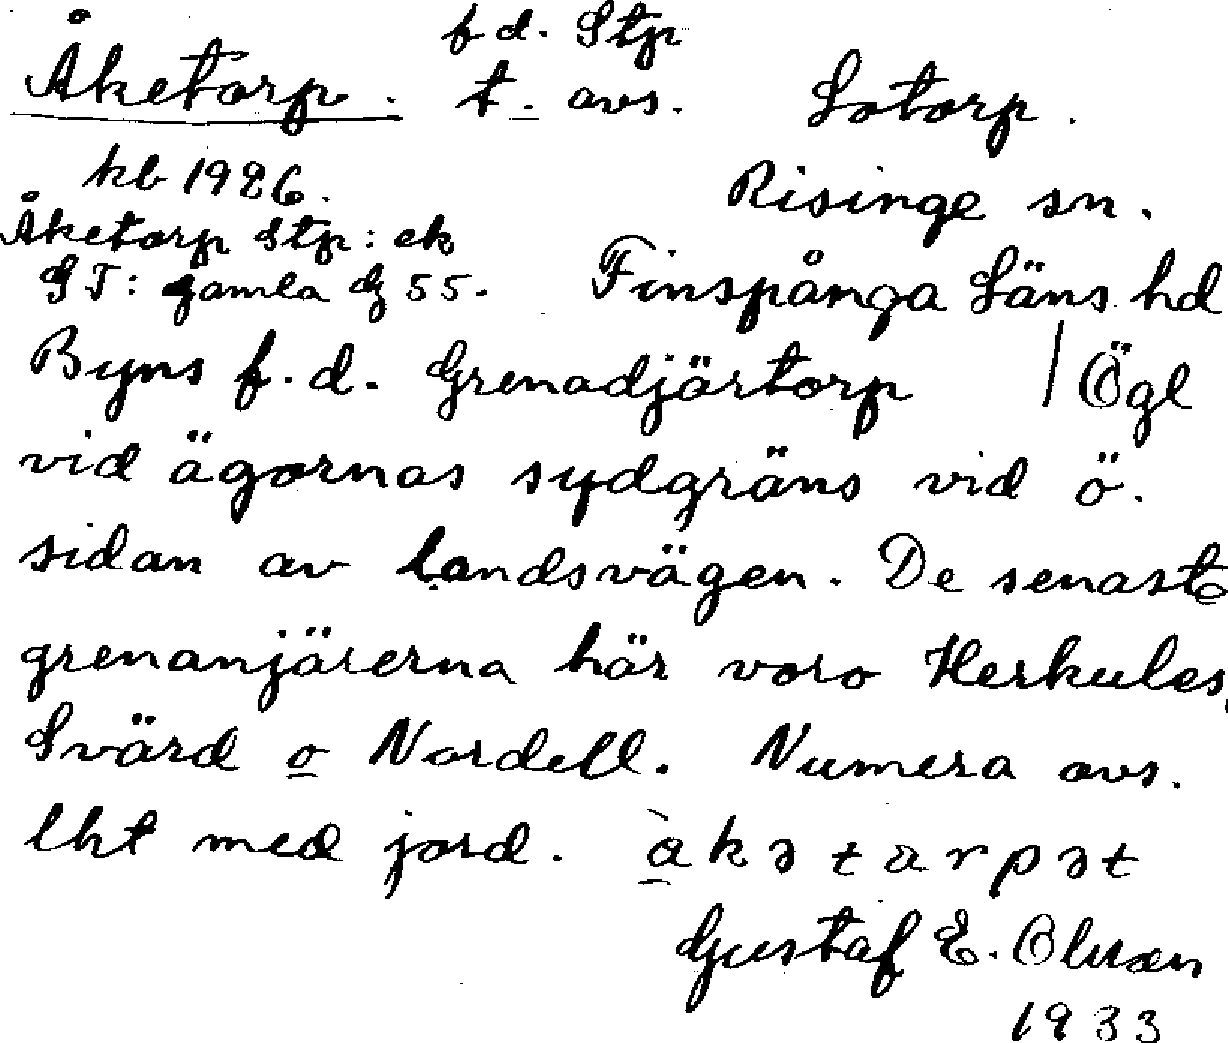 f d. Stp
Åketorp. t. avs. Lotorp.
kb 1926. Risinge sn.
Åketorp Stp: ek
GT: gamla Dg 55. Finspånga Läns hd
Byns f.d. Grenadjärtorp / Ögl
vid ägornas sydgräns vid ö.
sidan av landsvägen. De senaste
grenanjärerna här voro Herkules,
Svärd o Nordell. Numera avs.
lht med jord. å̀kətarpət
Gustaf E. Oluxen
1933